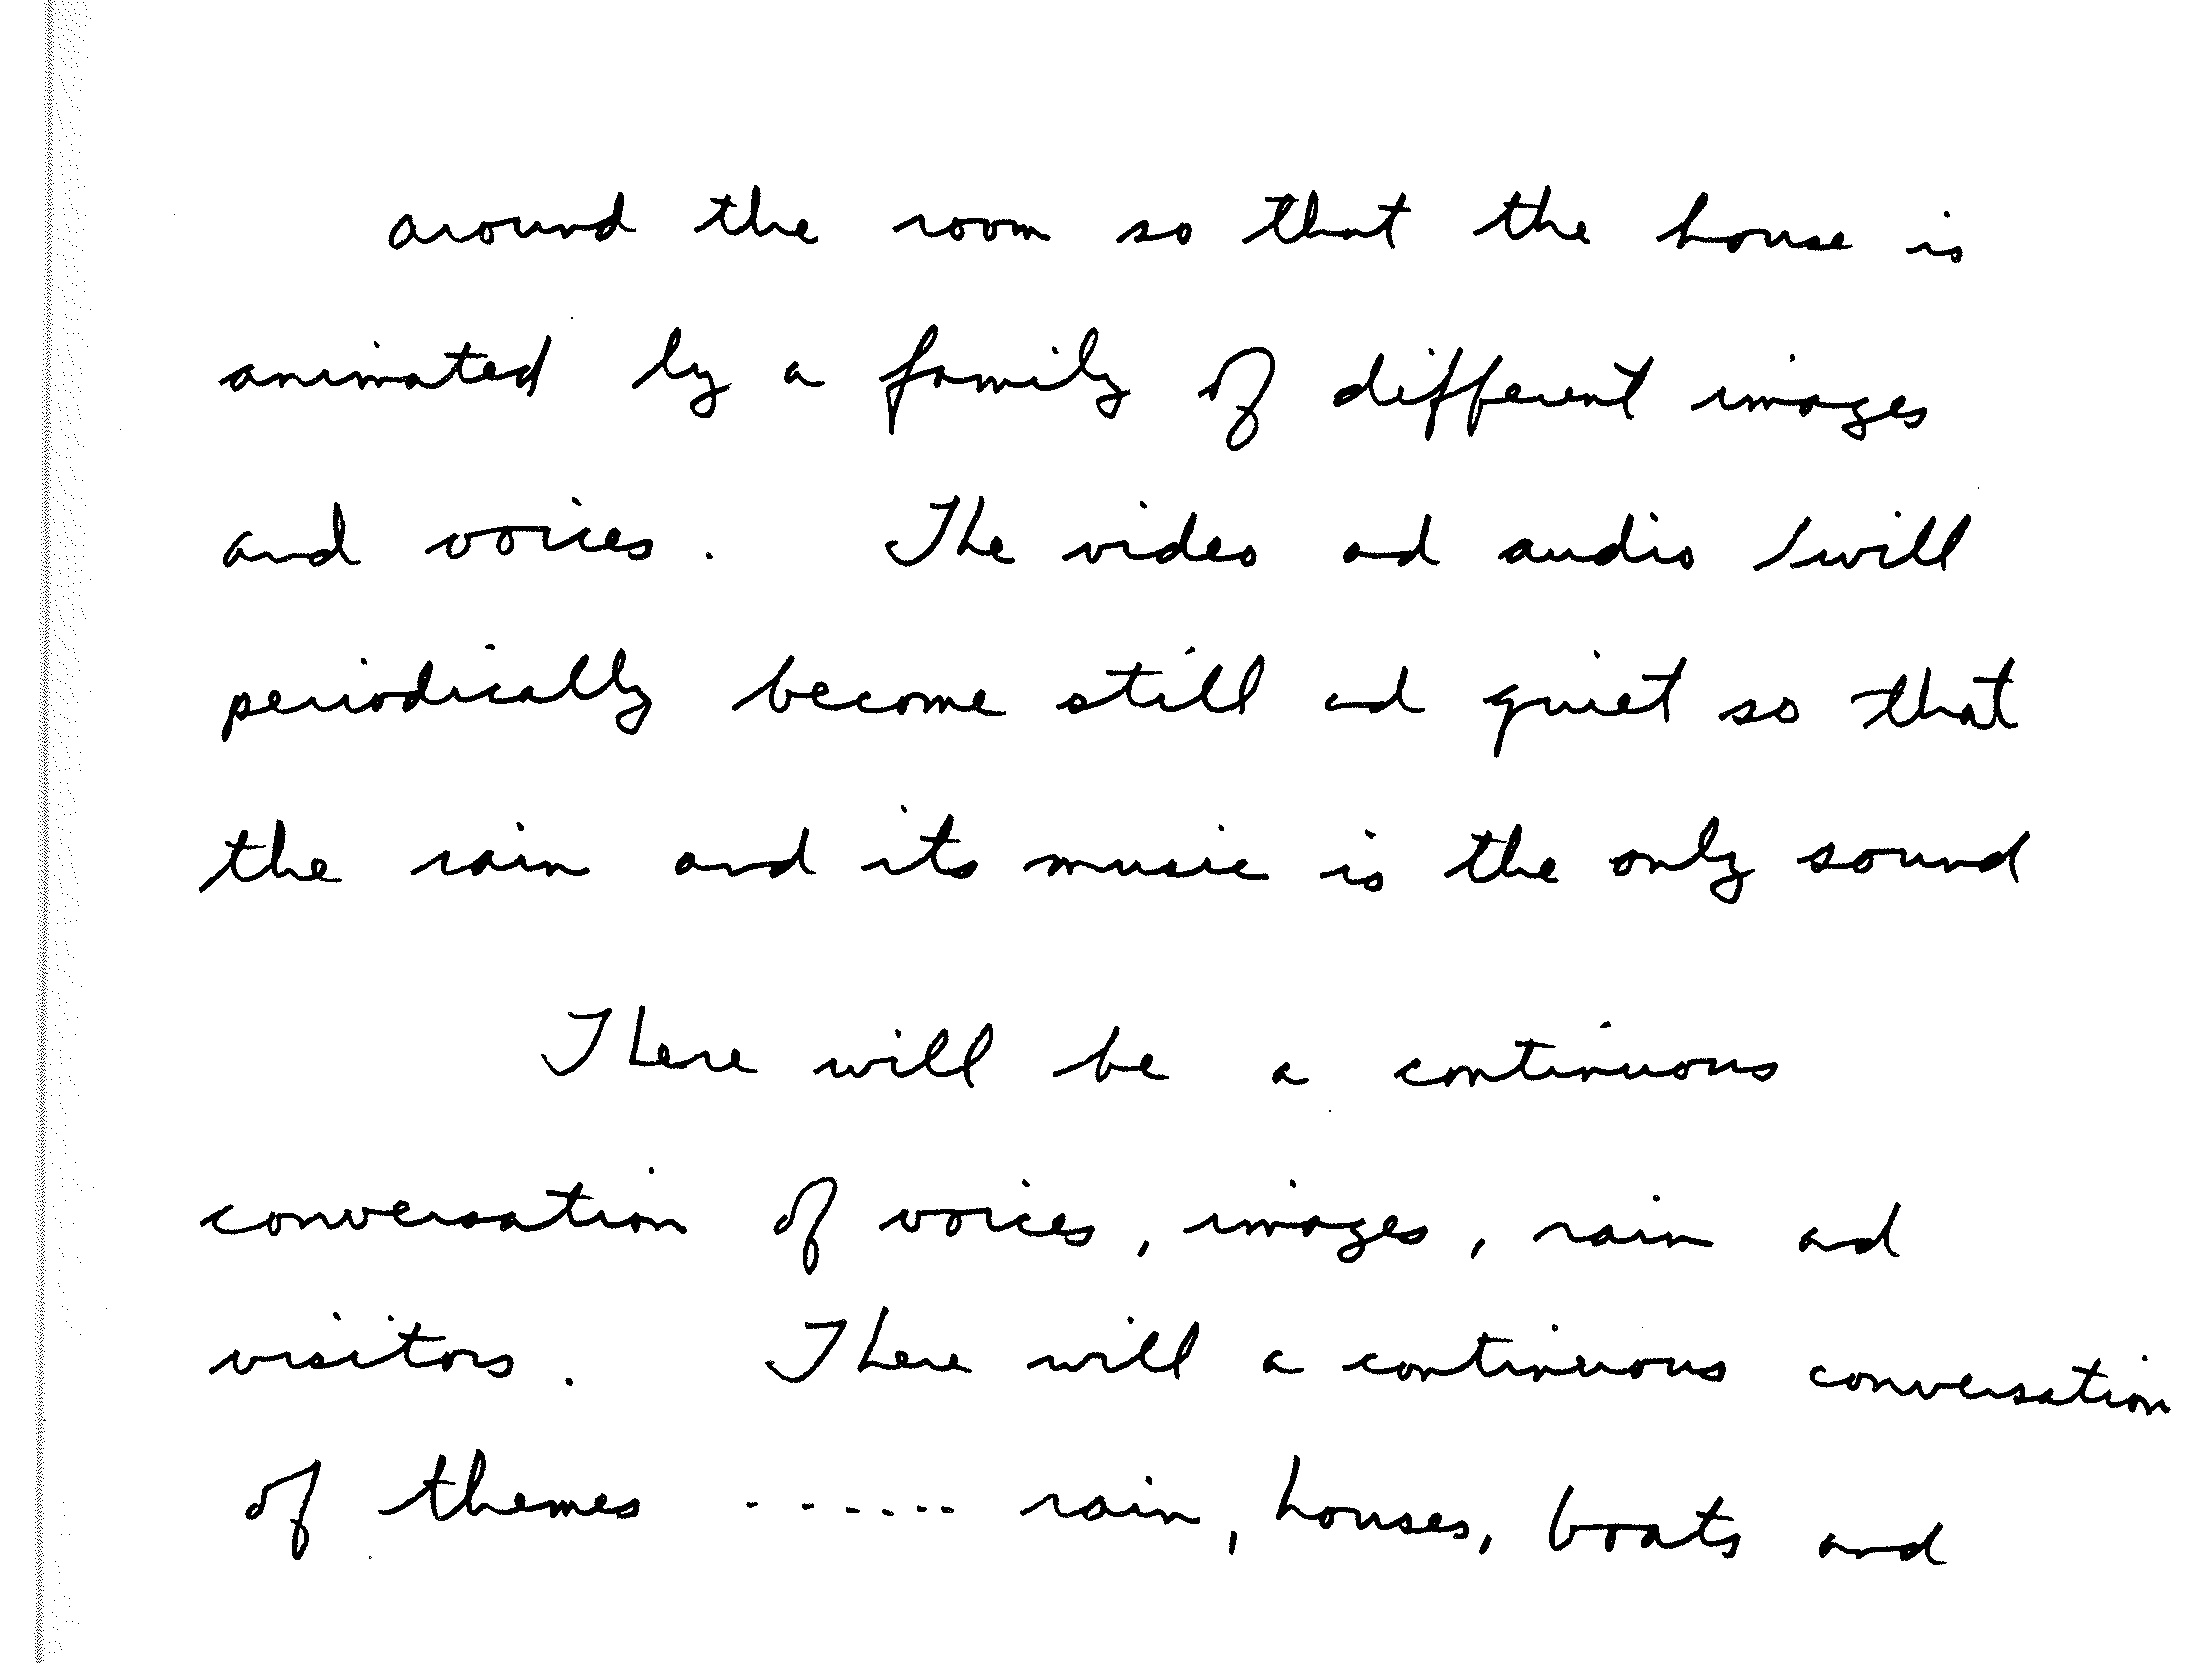 around the room so that the house is
animated by a family of different images
and voices. The video ad audio will
periodically become still ad quiet so that
the rain and its music is the only sound
There will be a continuous
conversation of voices, images, rain ad
visitors. There will a continuous conversation
of themes ...... rain, houses, boats and